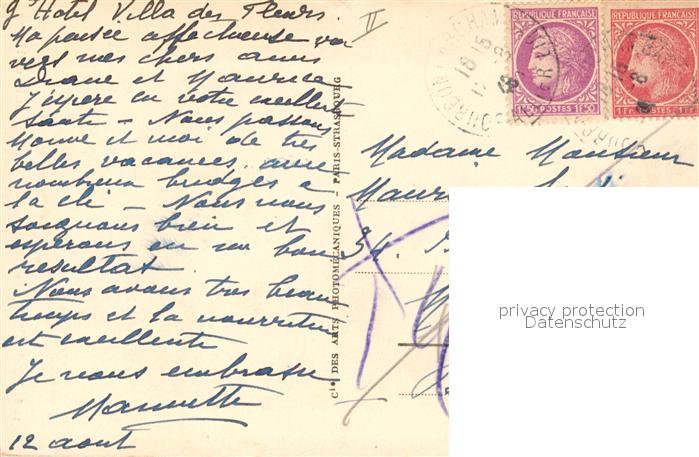 Hotel Villa des Fleurs.
Ma pensée affectueuse va
vers mes chers amis
Diane et Maurice
J'espère en votre excellente
santé - Nous passons
et moi de très
belles vacances, avec
nombreux bridges à
la clé - Nous nous
soignons bien et
espérons en un bon
résultat.
Nous avons très beau
temps et la nourriture
est excellente
Je vous embrasse
12 août
Cie DES ARTS PHOTOMÉCANIQUES - PARIS-STRASBOURG
II
REPUBLIQUE FRANÇAISE
POSTES 1F50
REPUBLIQUE FRANÇAISE
1F
Madame Monsieur
34.
privacy protection
Datenschutz